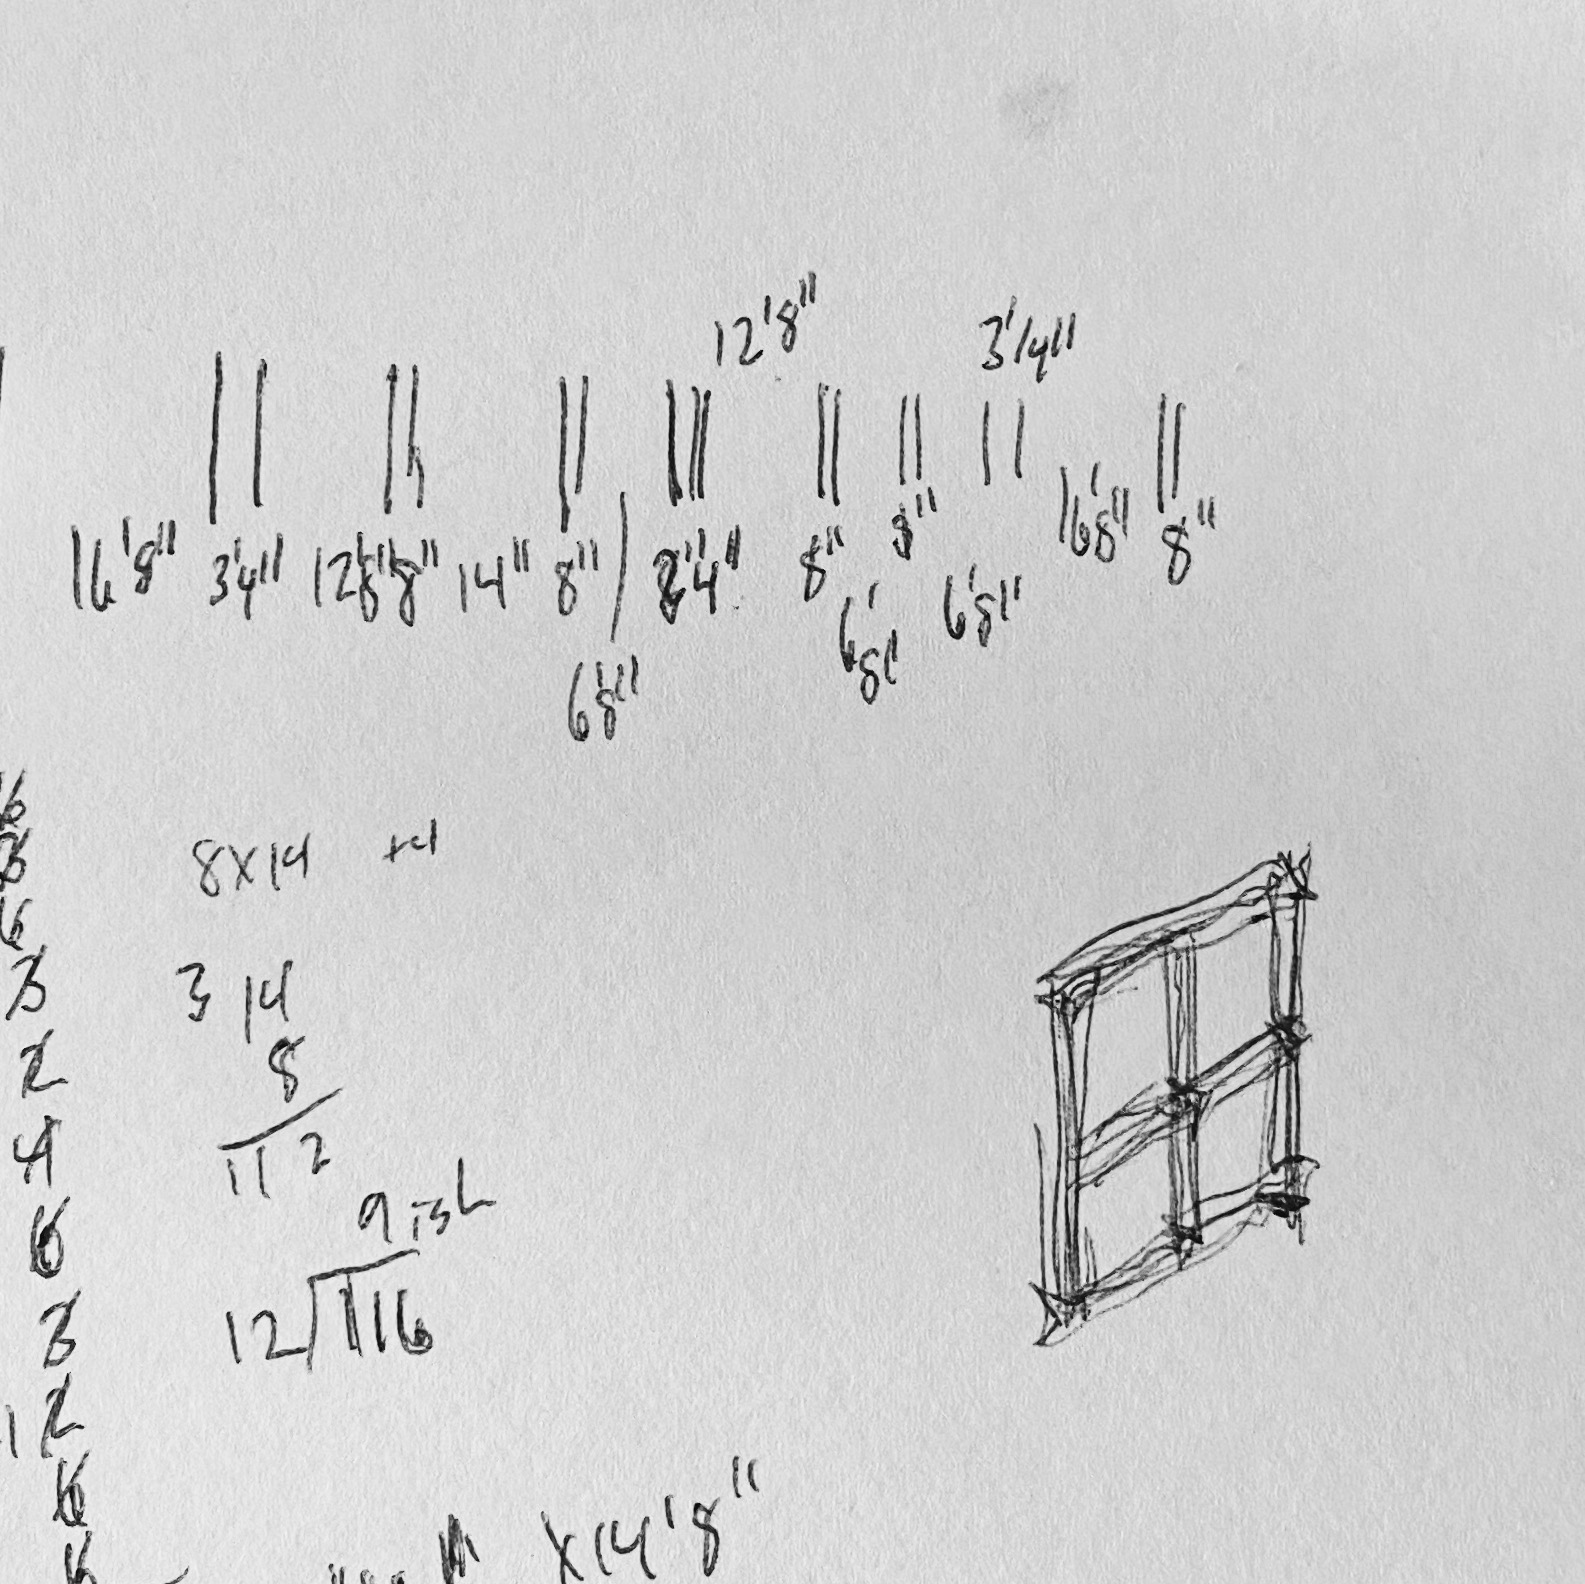 12'8"
3'4"
16'8" 3'4" 12'8" 8" 14" 8" 4" 8" 8" 16'8" 8"
6'8" 6'8" 6'8"
8x14 +4
3 14
8
112
9ish
12 116
3
2
4
6
3
12
6
x14'8"